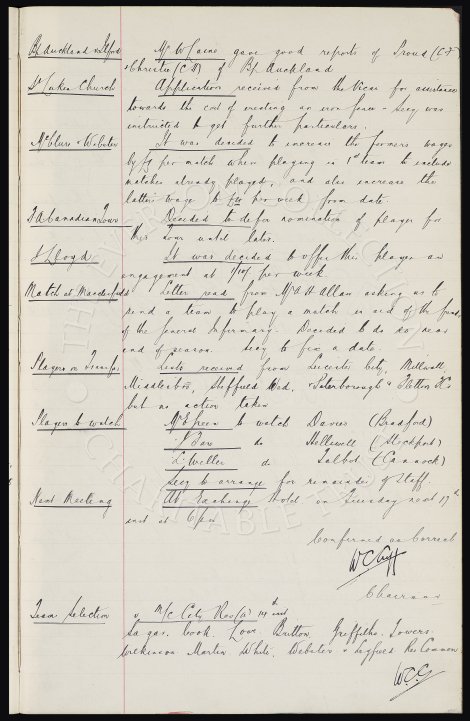 Bp Auckland & Ilford Mr W Caine gave good reports of Proud (C F)
& Christie (C H) of Bp. Auckland
St Lukes Church Application received from the Vicar for assistance
towards the cost of erecting an iron fence - Secy was
instructed to get further particulars.
McClure & Webster It was decided to increase the formers wages
by per match when playing in 1st team to include
matches already played, and also increase the
latters wage to per week from date.
F A Canadian Tour Decided to defer nomination of player for
this Tour until later.
J Lloyd It was decided to offer this player an
engagement at per week
Match at Macclesfield Letter read from Mr A H Allan asking us to
send a team to play a match in aid of the funds
of the General Infirmary. Decided to do so near
end of season. Secy to fix a date.
Players on Transfer Lists received from Leicester City, Millwall,
Middlesbro, Sheffield Wed, "Peterborough" & Fletton &c
but no action taken
Players to watch Mr Green to watch Davies (Bradford)
do Helliwell (Stockport)
do Talbot (Cannock)
Secy to arrange for remainder of Staff.
Next Meeting At Exchange Hotel on Tuesday next 17th
inst at 6 pm
Confirmed as Correct
W C Cuff
Chairman
Team Selection v. M/c City Res (a) 14th inst
Sagar. Cook. Low. Britton. Griffiths. Towers.
Wilkinson Martin White. Webster & Leyfield Res Common
W.C.C